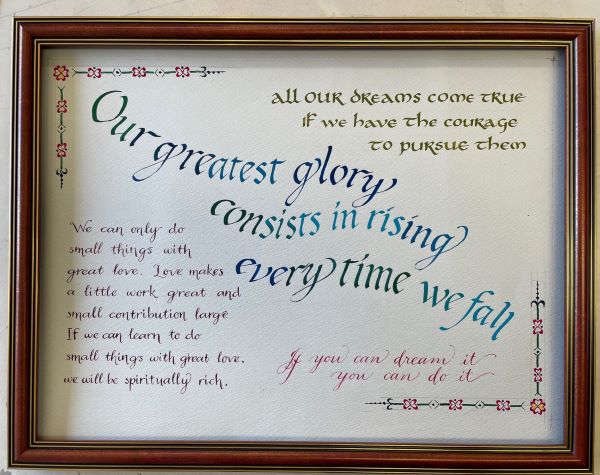 all our dreams come true
if we have the courage
to pursue them
Our greatest glory
consists in rising
every time we fall
'We can only do
small things with
great love. Love makes
a little work great and
small contribution large
If we can learn to do
small things with great love,
we will be spiritually rich.
If you can dream it
you can do it